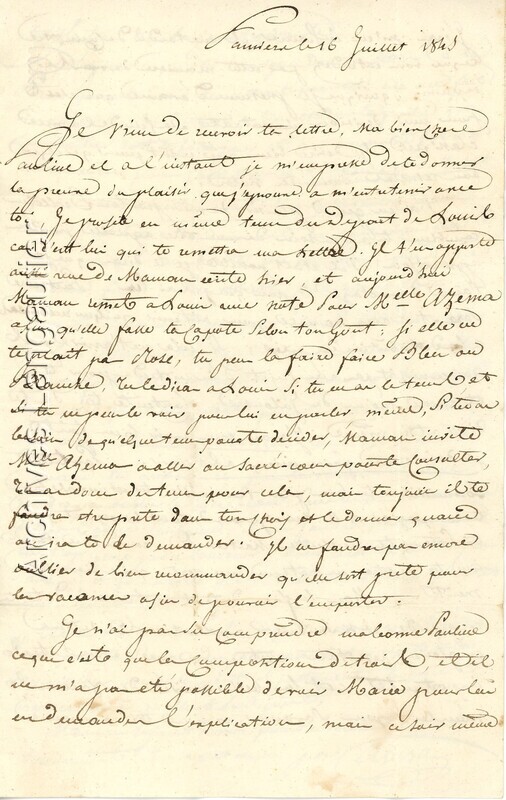 le 16 Juillet 1845
Je viens de recevoir ta lettre, Ma bien chere
Pauline et a l'instant je m'empresse de te donner
la preuve du plaisir que j'eprouve a m'entretenir avec
toi, Je profite en même tems du Depart de Louis
car c'est lui qui te remettra ma lettre. Il t'en apporte
aussi une de Maman ecrite hier, et aujourd'hui
Maman remet a Louis une note pour Melle Azema
afin qu'elle fasse ta Capote selon ton Gout; si elle ne
te plait pas Rose, tu peux la faire faire Bleu ou
Blanche. Tu le diras a Louis si tu en as le tems et
si tu peux le voir pour lui en parler même, Si tu as
besoin de quelque tems pour te decider, Maman invite
Melle Azema a aller au Sacré-coeur pour te Consulter,
Tu as donc du tems pour cela, mais toujours il te
faudra etre prete dans ton choix et le donner quand
on ira te le demander. Il ne faudra pas encore
oublier de bien recommander qu'elle soit prete pour
les vacances afin de pouvoir l'emporter.
Je n'ai pas su Comprendre ma bonne Pauline
ce que c'est que les Compositions et il
ne m'a pas eté possible de voir Maria pour lui
en demander l'explication, mais ce soir même
Archives LabigBauille.fr